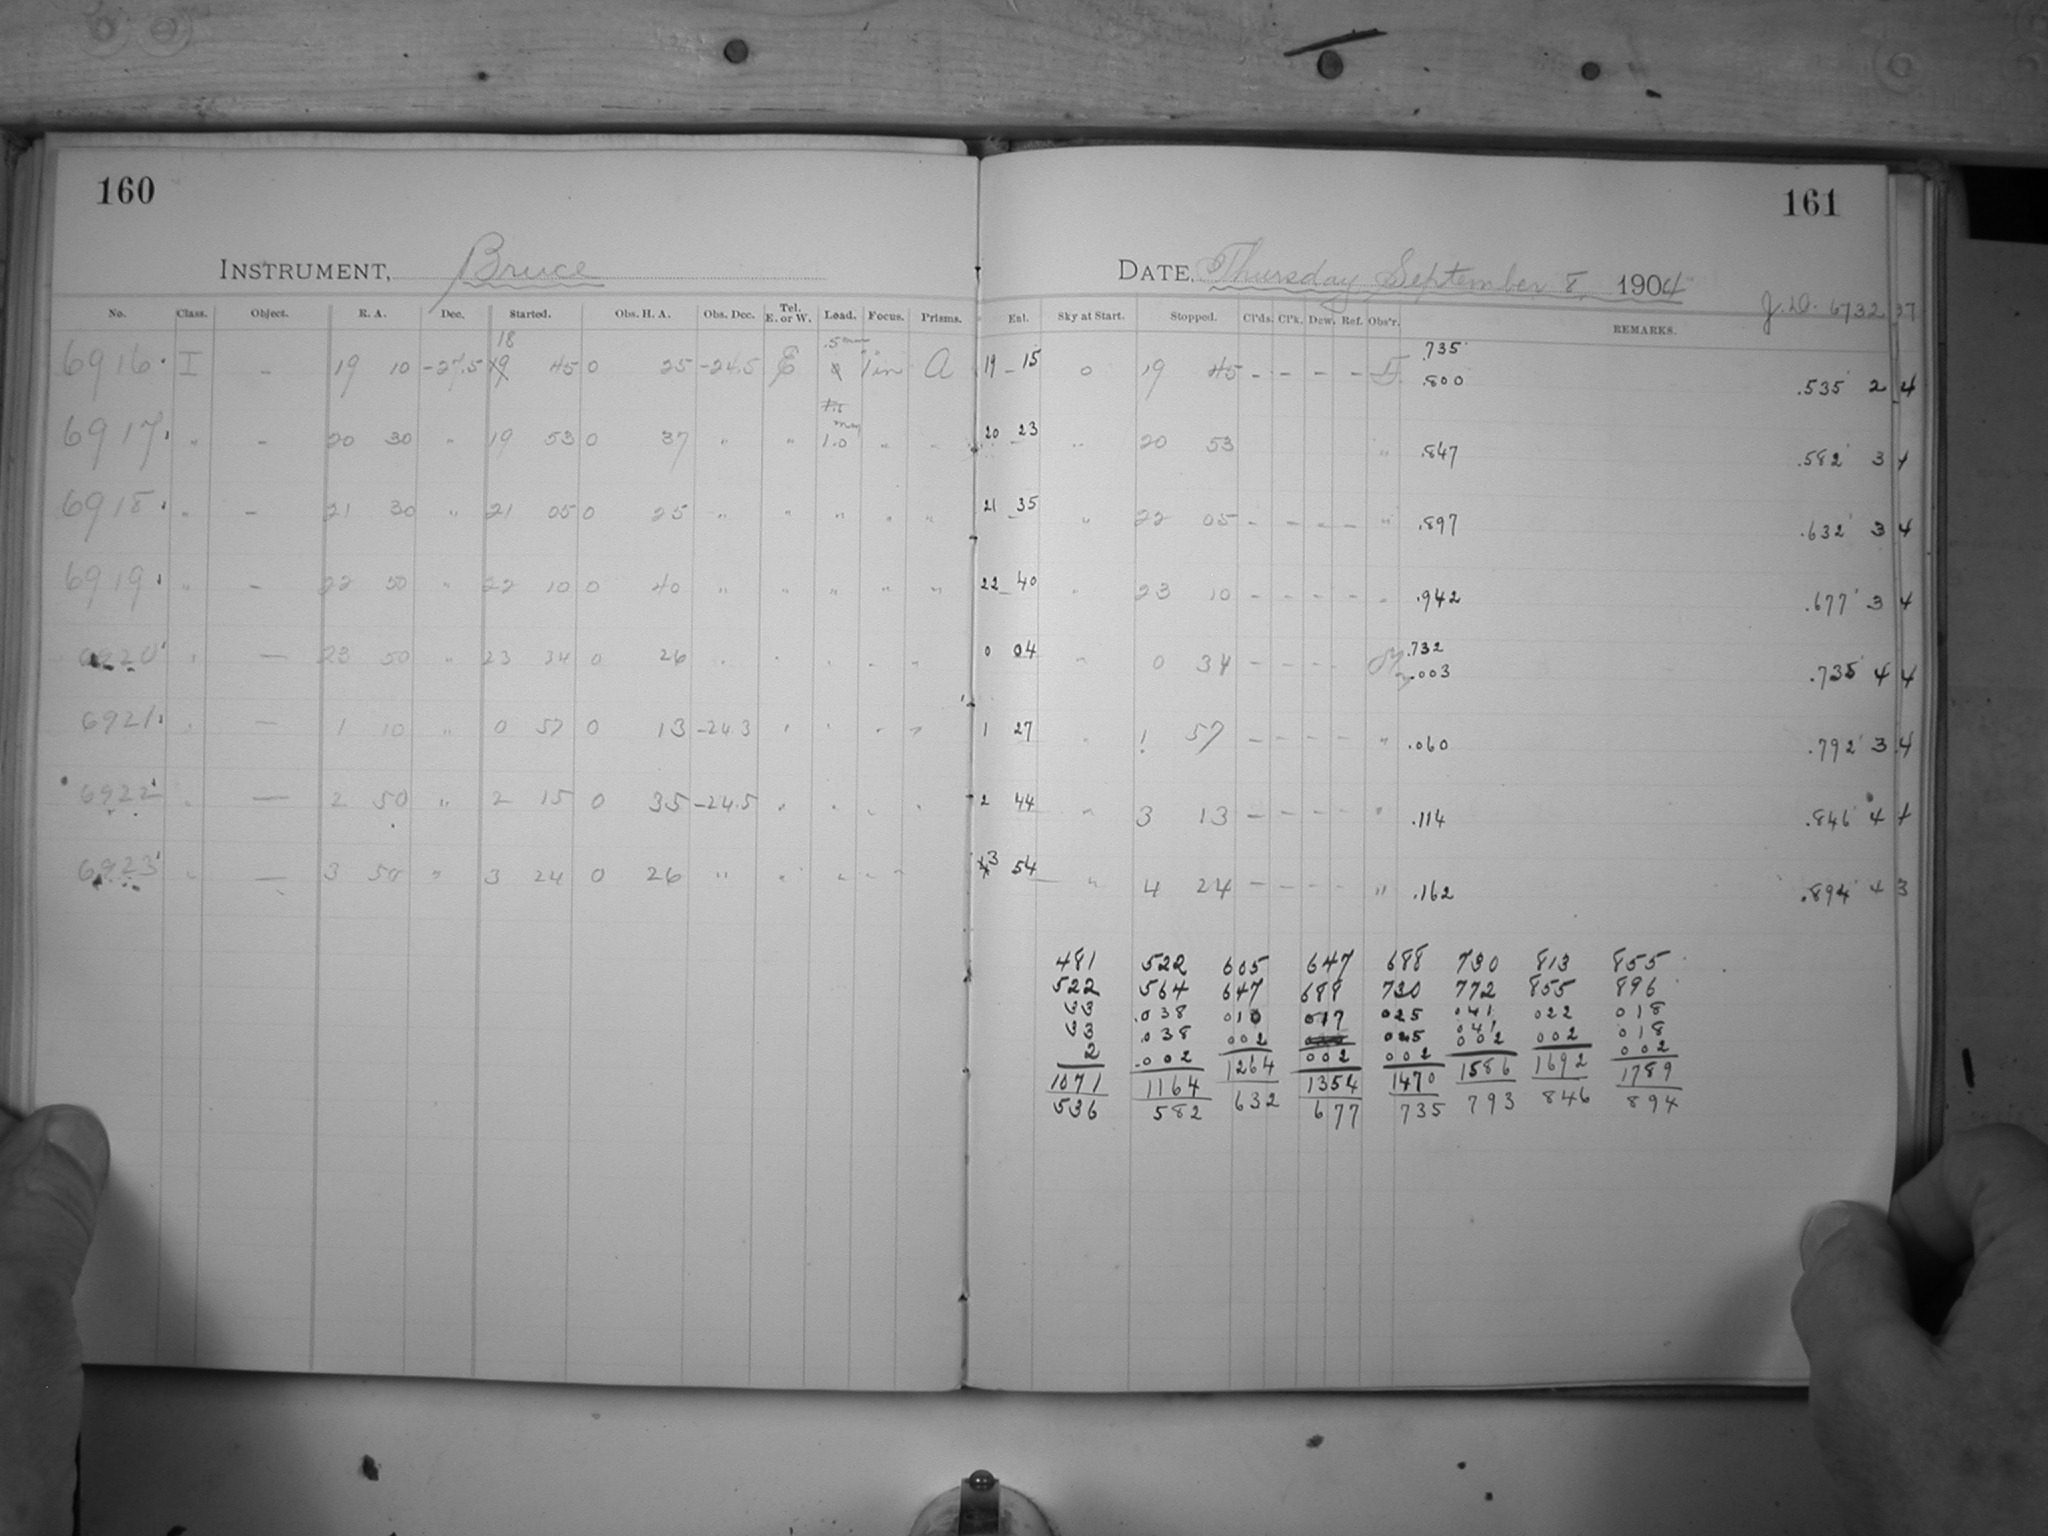 160
161
INSTRUMENT, Bruce
DATE, Thursday September 8, 1904
J.D. 6732 37
No. Class. Object. R. A. Dec. Started. Obs. H. A. Obs. Dec. Tel. E. or W. Load. Focus. Prisms. Enl. Sky at Start. Stopped. Cl'ds. Cl'k. Dew. Ref. Obs'r. REMARKS.
18 .5mm .735
6916 I - 19 10 -27.5 45 0 25 -24.5 E Tin A 19 15 0 19 45 - - - - .800 .535 2 4
6917 " - 20 30 " 19 53 0 37 " " 1.0 " - 20 23 " 20 53 " .847 .582 3
6918 " - 21 30 " 21 05 0 25 " " " " " 21 35 " 22 05 - - - - " .897 .632 3 4
6919 " - 22 50 " 22 10 0 40 " " " " " 22 40 " 23 10 - - - - " .942 .677 3 4
.732
6920 " - 23 50 " 23 34 0 26 " " " " " 0 04 " 0 34 - - - - .003 .735 4 4
6921 " - 1 10 " 0 57 0 13 -24.3 " " " " 1 27 " 1 57 - - - - " .060 .792 3 4
6922 " - 2 50 " 2 15 0 35 -24.5 " " " " 2 44 " 3 13 - - - - " .114 .846 4
6923 " - 3 50 " 3 24 0 26 " " " " " 3 54 " 4 24 - - - - " .162 .894 4 3
481 522 605 647 688 730 813 855
522 564 647 688 730 772 855 896
33 .038 010 017 025 041 022 018
33 .038 002 025 041 002 018
2 .002 1264 002 002 002 1692 002
1071 1164 632 1354 1470 1586 846 1789
536 582 677 735 793 894